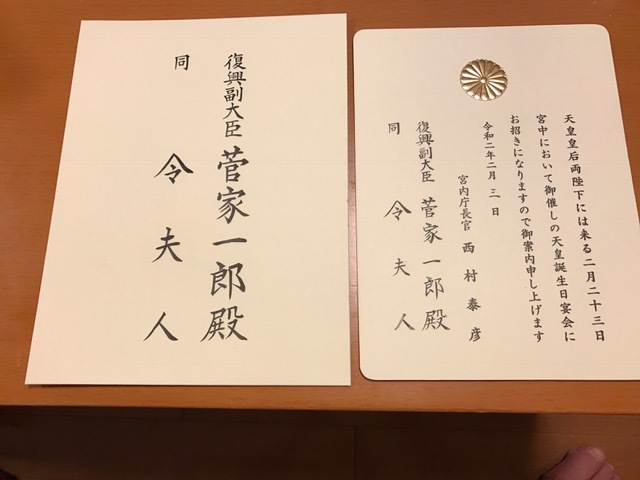 復興副大臣 菅家一郎殿
同 令夫人
天皇皇后両陛下には来る二月二十三日
宮中において御催しの天皇誕生日宴会に
お招きになりますので御案内申し上げます
令和二年二月三日
宮内庁長官 西村泰彦
復興副大臣 菅家一郎殿
同 令夫人